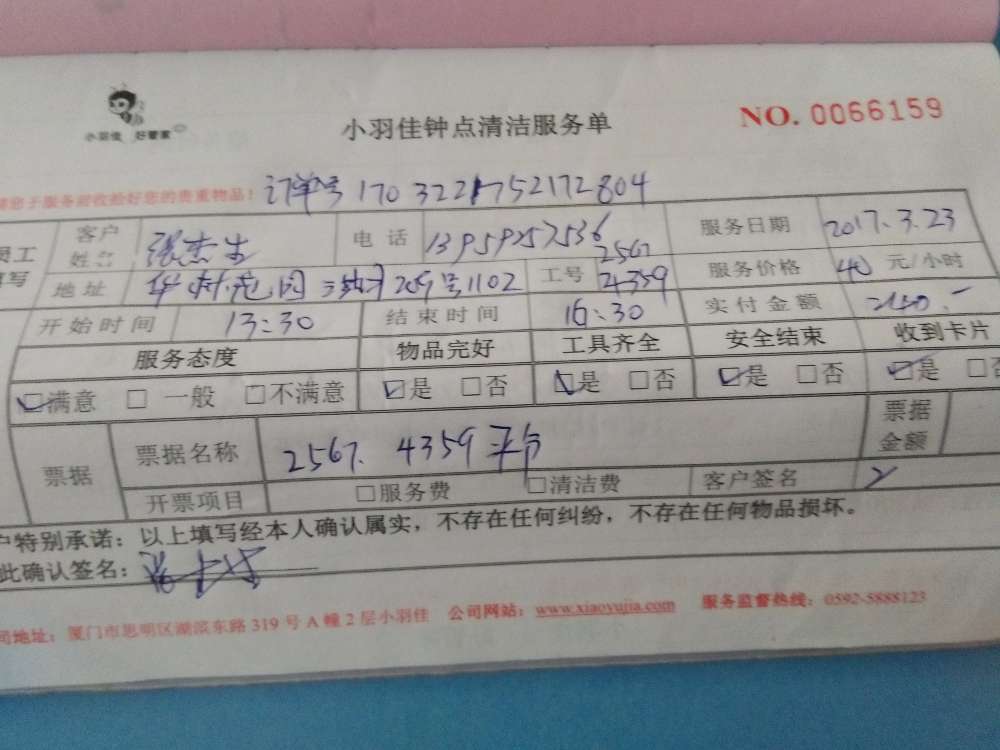 小羽佳 好管家
小羽佳钟点清洁服务单
NO. 0066159
您于服务前收拾好您的贵重物品! 订单号 1703221752172804
员工 客户姓名 张杰 电话 13959257536 服务日期 2017.3.23
填写 地址 209号1102 工号 2567 4359 服务价格 40 元/小时
开始时间 13:30 结束时间 16:30 实付金额
服务态度 物品完好 工具齐全 安全结束 收到卡片
☑满意 □ 一般 □不满意 ☑是 □否 ☑是 □否 ☑是 □否 ☑是 □否
票据 票据名称 2567. 4359 平台 票据金额
开票项目 □服务费 □清洁费 客户签名
户特别承诺: 以上填写经本人确认属实，不存在任何纠纷，不存在任何物品损坏。
此确认签名:
司地址: 厦门市思明区湖滨东路 319 号 A 幢 2 层小羽佳 公司网站: www.xiaoyujia.com 服务监督热线: 0592-5888123